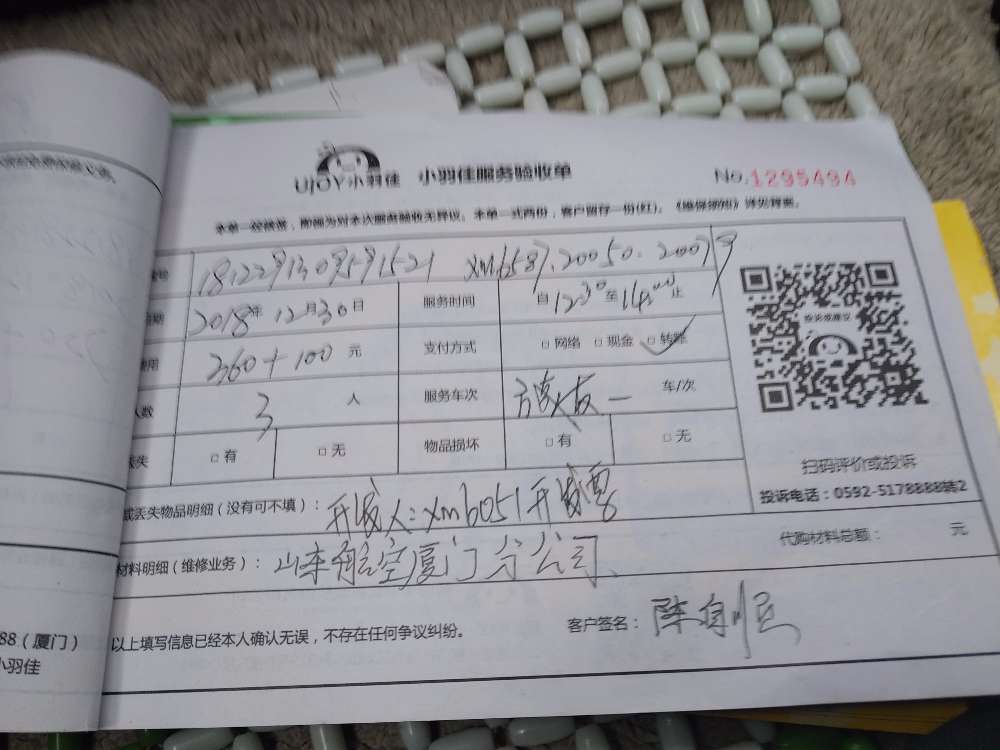 UJOY小羽佳 小羽佳服务验收单 No.1295494
本单一经接签，即视为对本次服务验收无异议。本单一式两份，客户留存一份(红)。《维保须知》详见背面。
xm6587.20050.20079
期 2018年12月30日 服务时间 自12:30至14:00止
用 360+100 元 支付方式 □网络 □现金 □转账
人数 3 人 服务车次 一 车/次
丢失 □有 □无 物品损坏 □有 □无
扫码评价或投诉
投诉电话：0592-5178888转2
或丢失物品明细（没有可不填）： 开发人：xm6051开发票
材料明细（维修业务）： 山东航空厦门分公司 代购材料总额： 元
以上填写信息已经本人确认无误，不存在任何争议纠纷。 客户签名：
88（厦门）
小羽佳